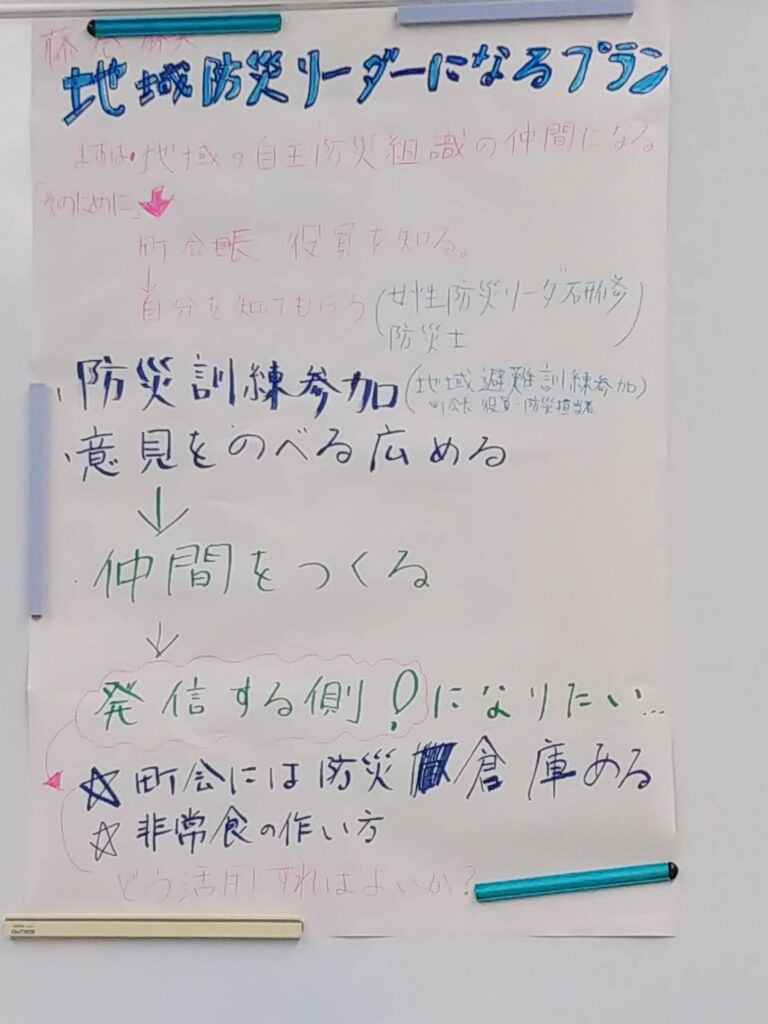 地域防災リーダーになるプラン
まずは・地域の自主防災組織の仲間になる
「そのために」
町会長 役員を知る。
↓
自分を知ってもらう(女性防災リーダ研修
防災士)
・防災訓練参加(地域避難訓練参加)
町会長 役員・防災担当者
・意見をのべる広める
↓
・仲間をつくる
↓
発信する側!になりたい…
☆町会には防災倉庫ある
☆非常食の作い方
どう活用すればよいか?